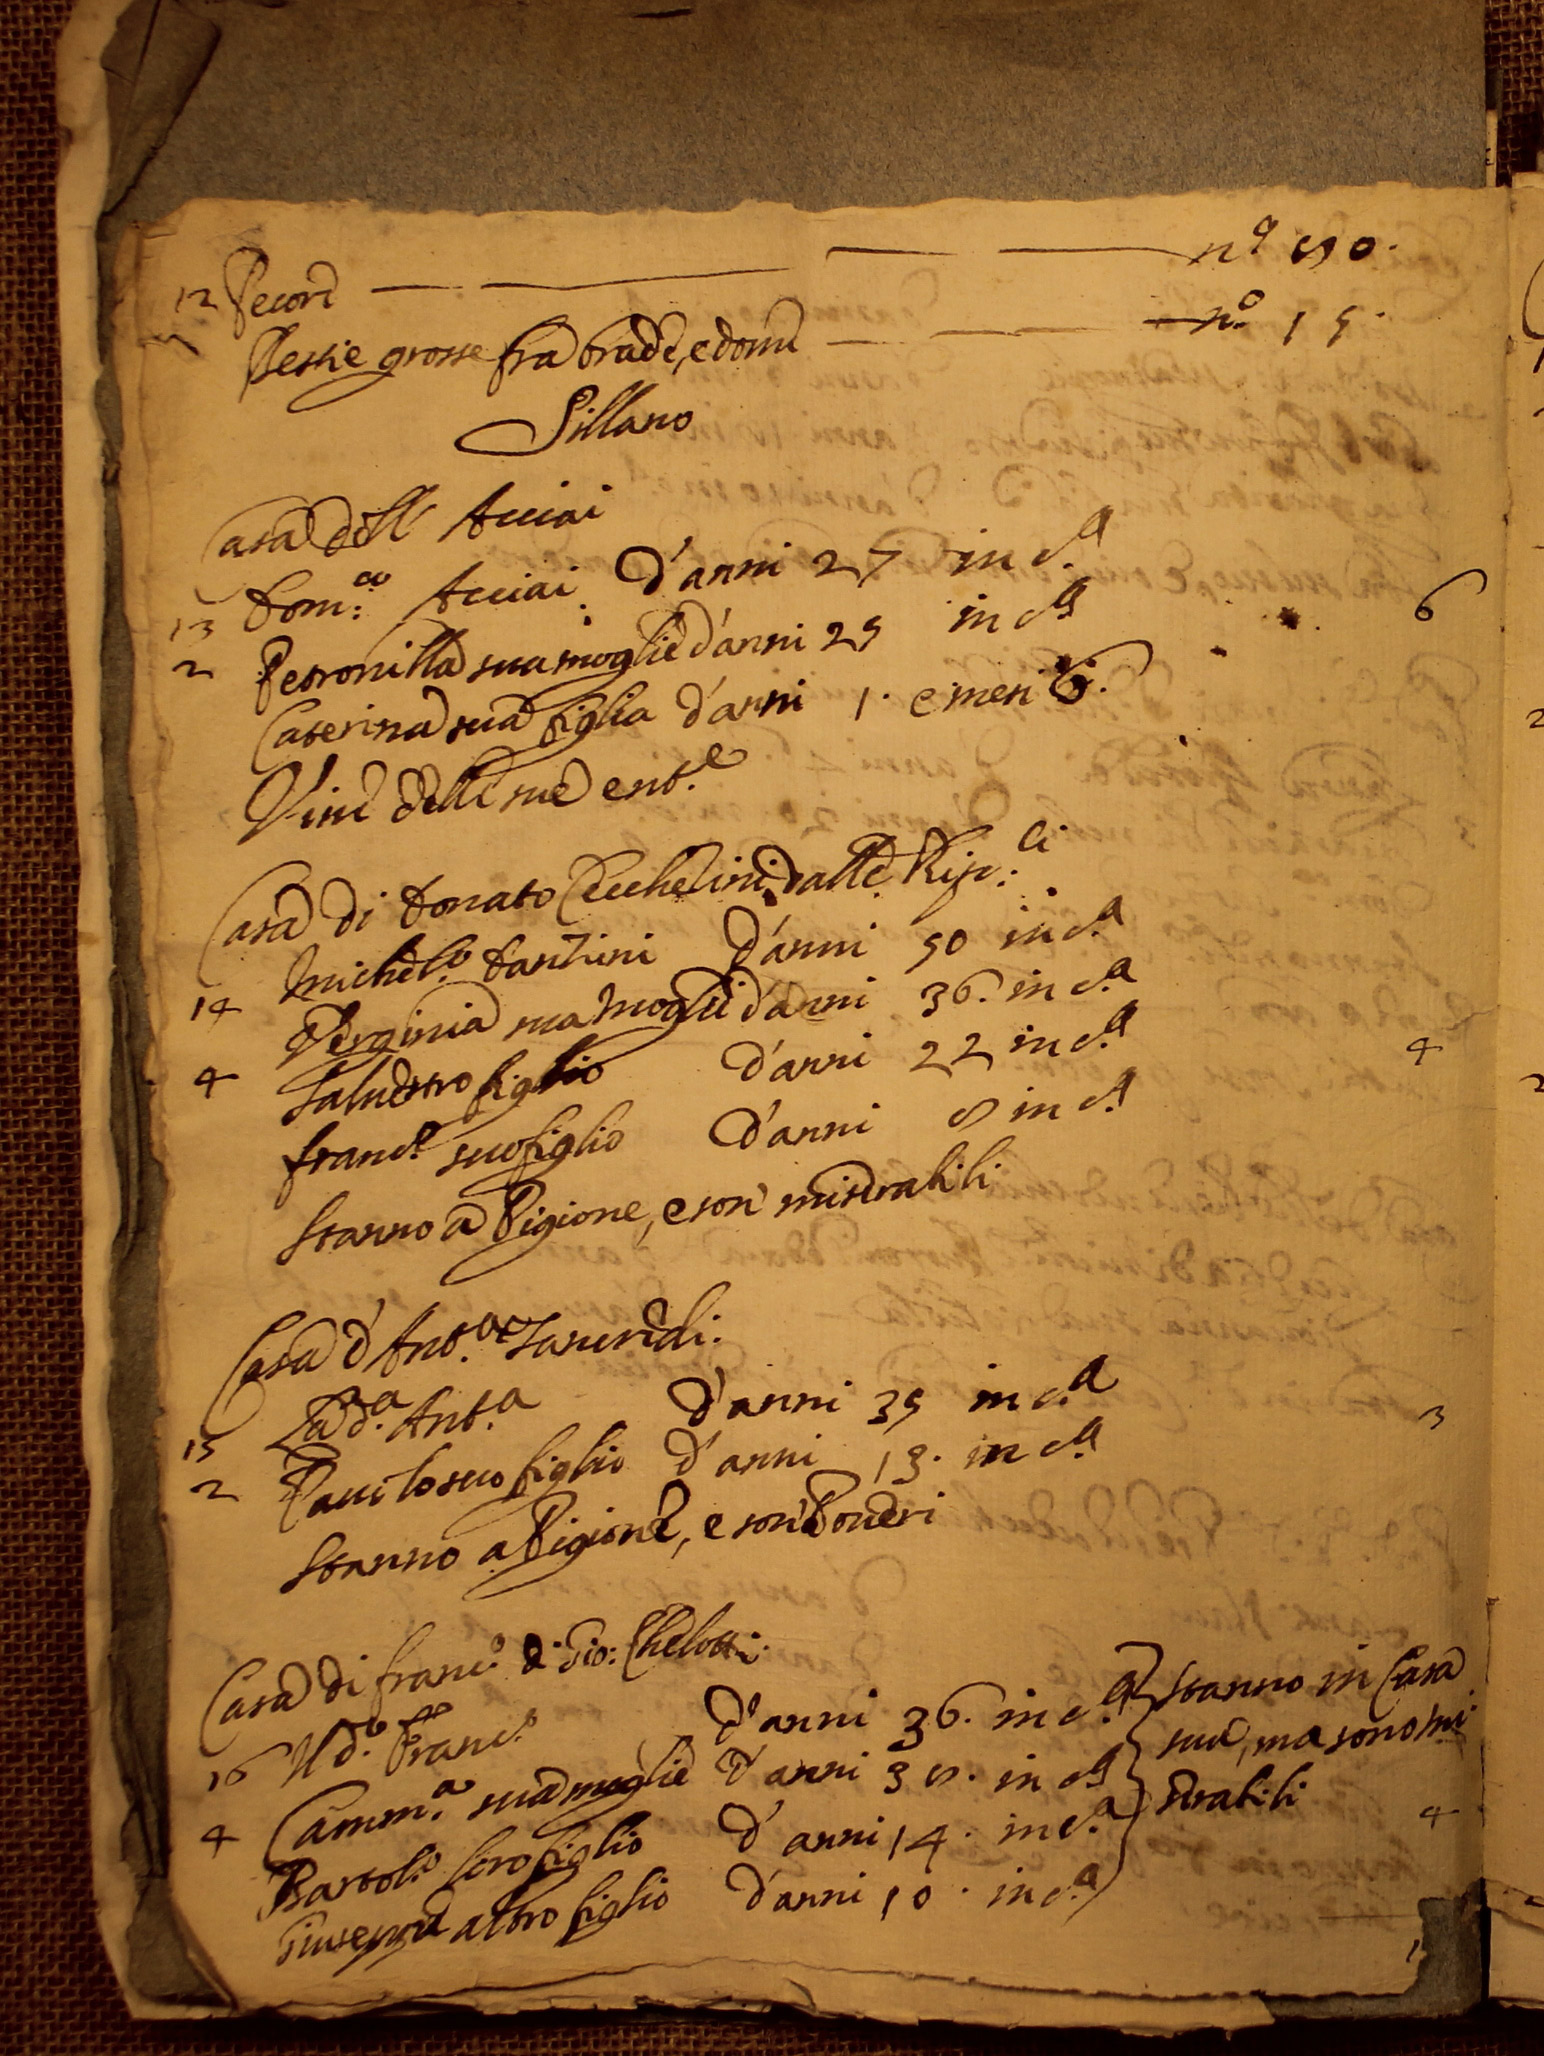 12 Pecore nº 80.
Bestie grosse fra brade, e dome nº 15.
Sillano
Casa delli Acciai
13 Dom.co Acciai d'anni 27 in c.a
2 Petronilla sua moglie d'anni 25 in c.a 6
Caterina sua figlia d'anni 1. e mesi 6.
Vive delle sue ent.e
Casa di Donato Cecchelini, dalle Rip:
14 Michel.o Dantini d'anni 50 in c.a
Verginia sua moglie d'anni 36. in c.a
4 figlio d'anni 22 in c.a 4
Franc.o suo figlio d'anni 8 in c.a
Stanno a Pigione, e son miserabili
Casa d'Ant.o
15 La d.a Ant.a d'anni 35 in c.a 3
2 Pavilo suo figlio d'anni 13. in c.a
Stanno a Pigione, e son Poveri
Casa di Franc.o di Gio: Chelotti.
16 Il d.o Franc.o d'anni 36. in c.a Stanno in Casa
Camm.a sua moglie d'anni 38. in c.a sua, ma sono mi
4 Bartol.o loro figlio d'anni 14. in c.a serabili 4
Giuseppe altro figlio d'anni 10. in c.a